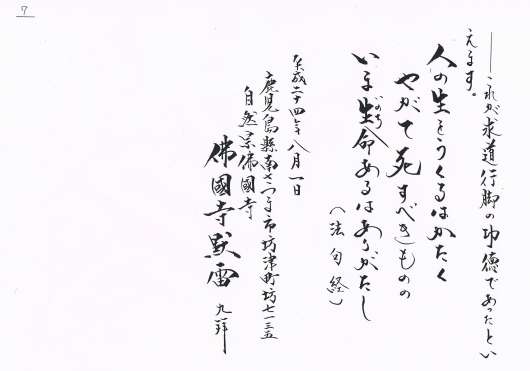 7
――これが求道行脚の功徳であったとい
えます。
人の生をうくるはかたく
やがて死すべきものの
いま生命あるはありがたし
いのち
(法句経)
平成二十四年八月一日
鹿児島縣南さつま市坊津町坊七一三五
自然宗佛國寺
佛國寺黙雷
九拝